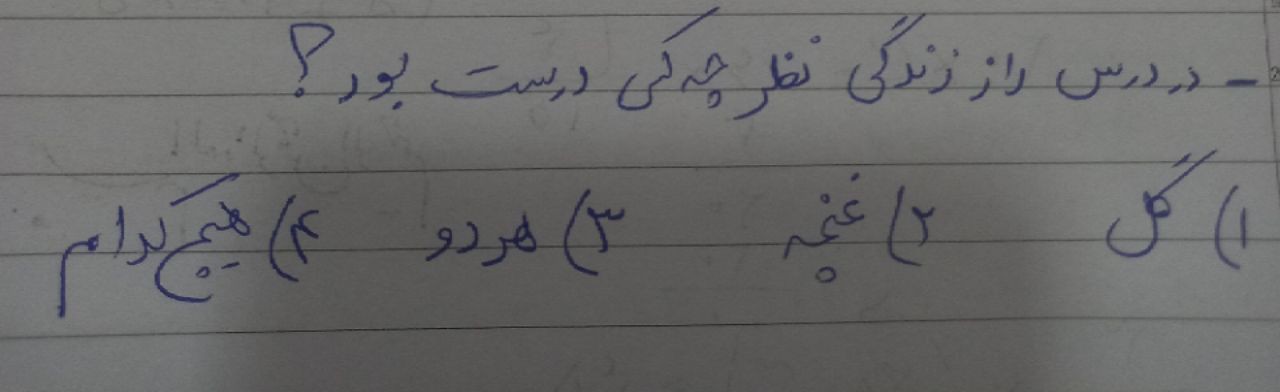 - در درس راز زندگی نظر چه کسی درست بود؟
۱) گل ۲) غنچه ۳) هر دو ۴) هیچ کدام